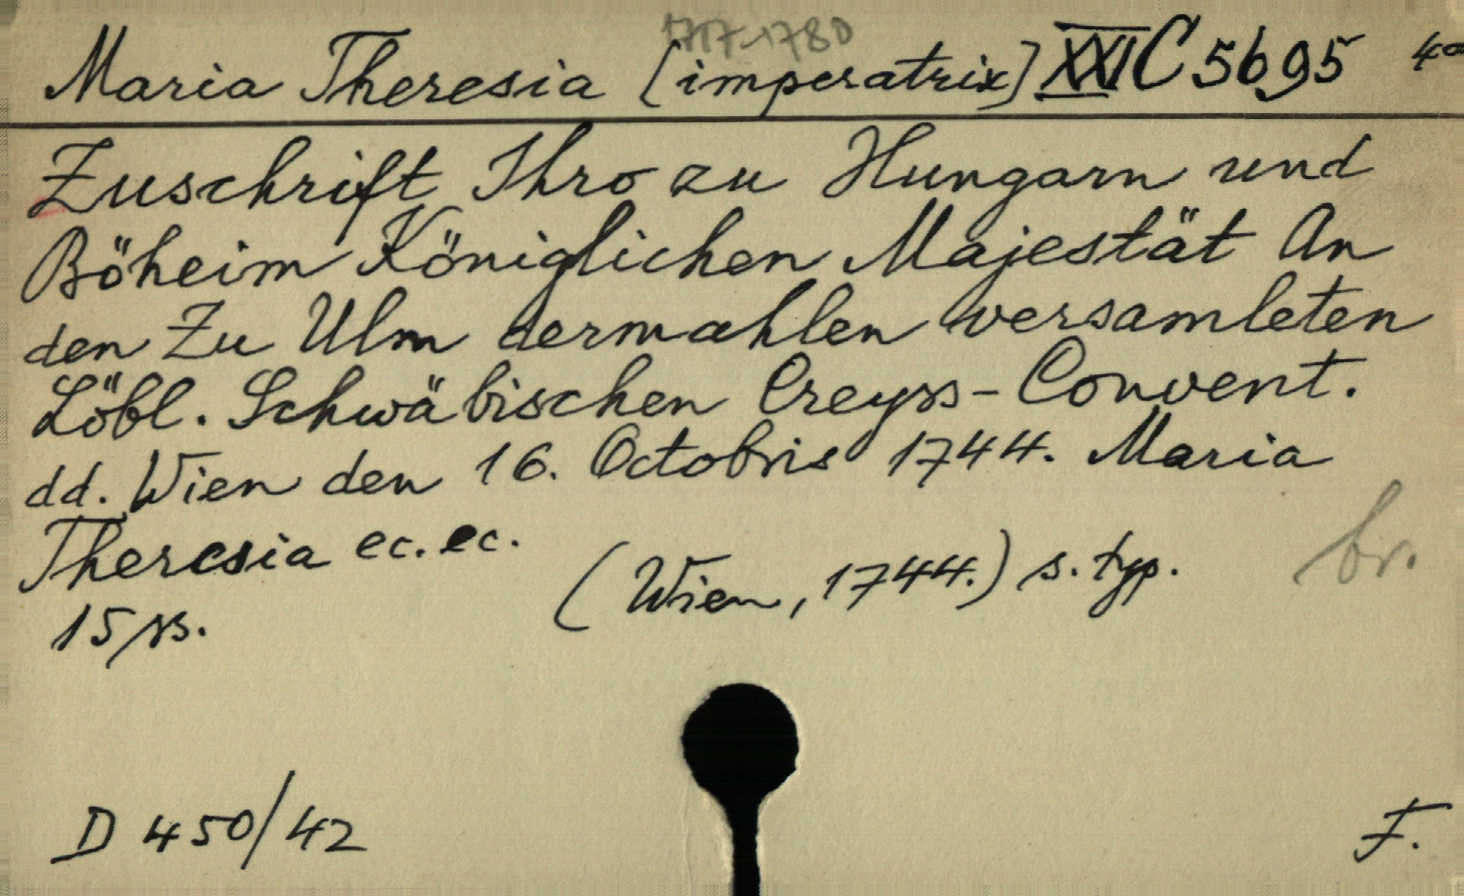 1717-1780
Maria Theresia [imperatrix] XXI C 5695 4°
Zuschrift Ihro zu Hungarn und
Böheim Königlichen Majestät An
den Zu Ulm dermahlen versamleten
Löbl. Schwäbischen Creyss-Convent.
dd. Wien den 16. Octobris 1744. Maria
Theresia ec. ec.
(Wien, 1744.) s. typ. br.
15 ss.
D 450/42 F.